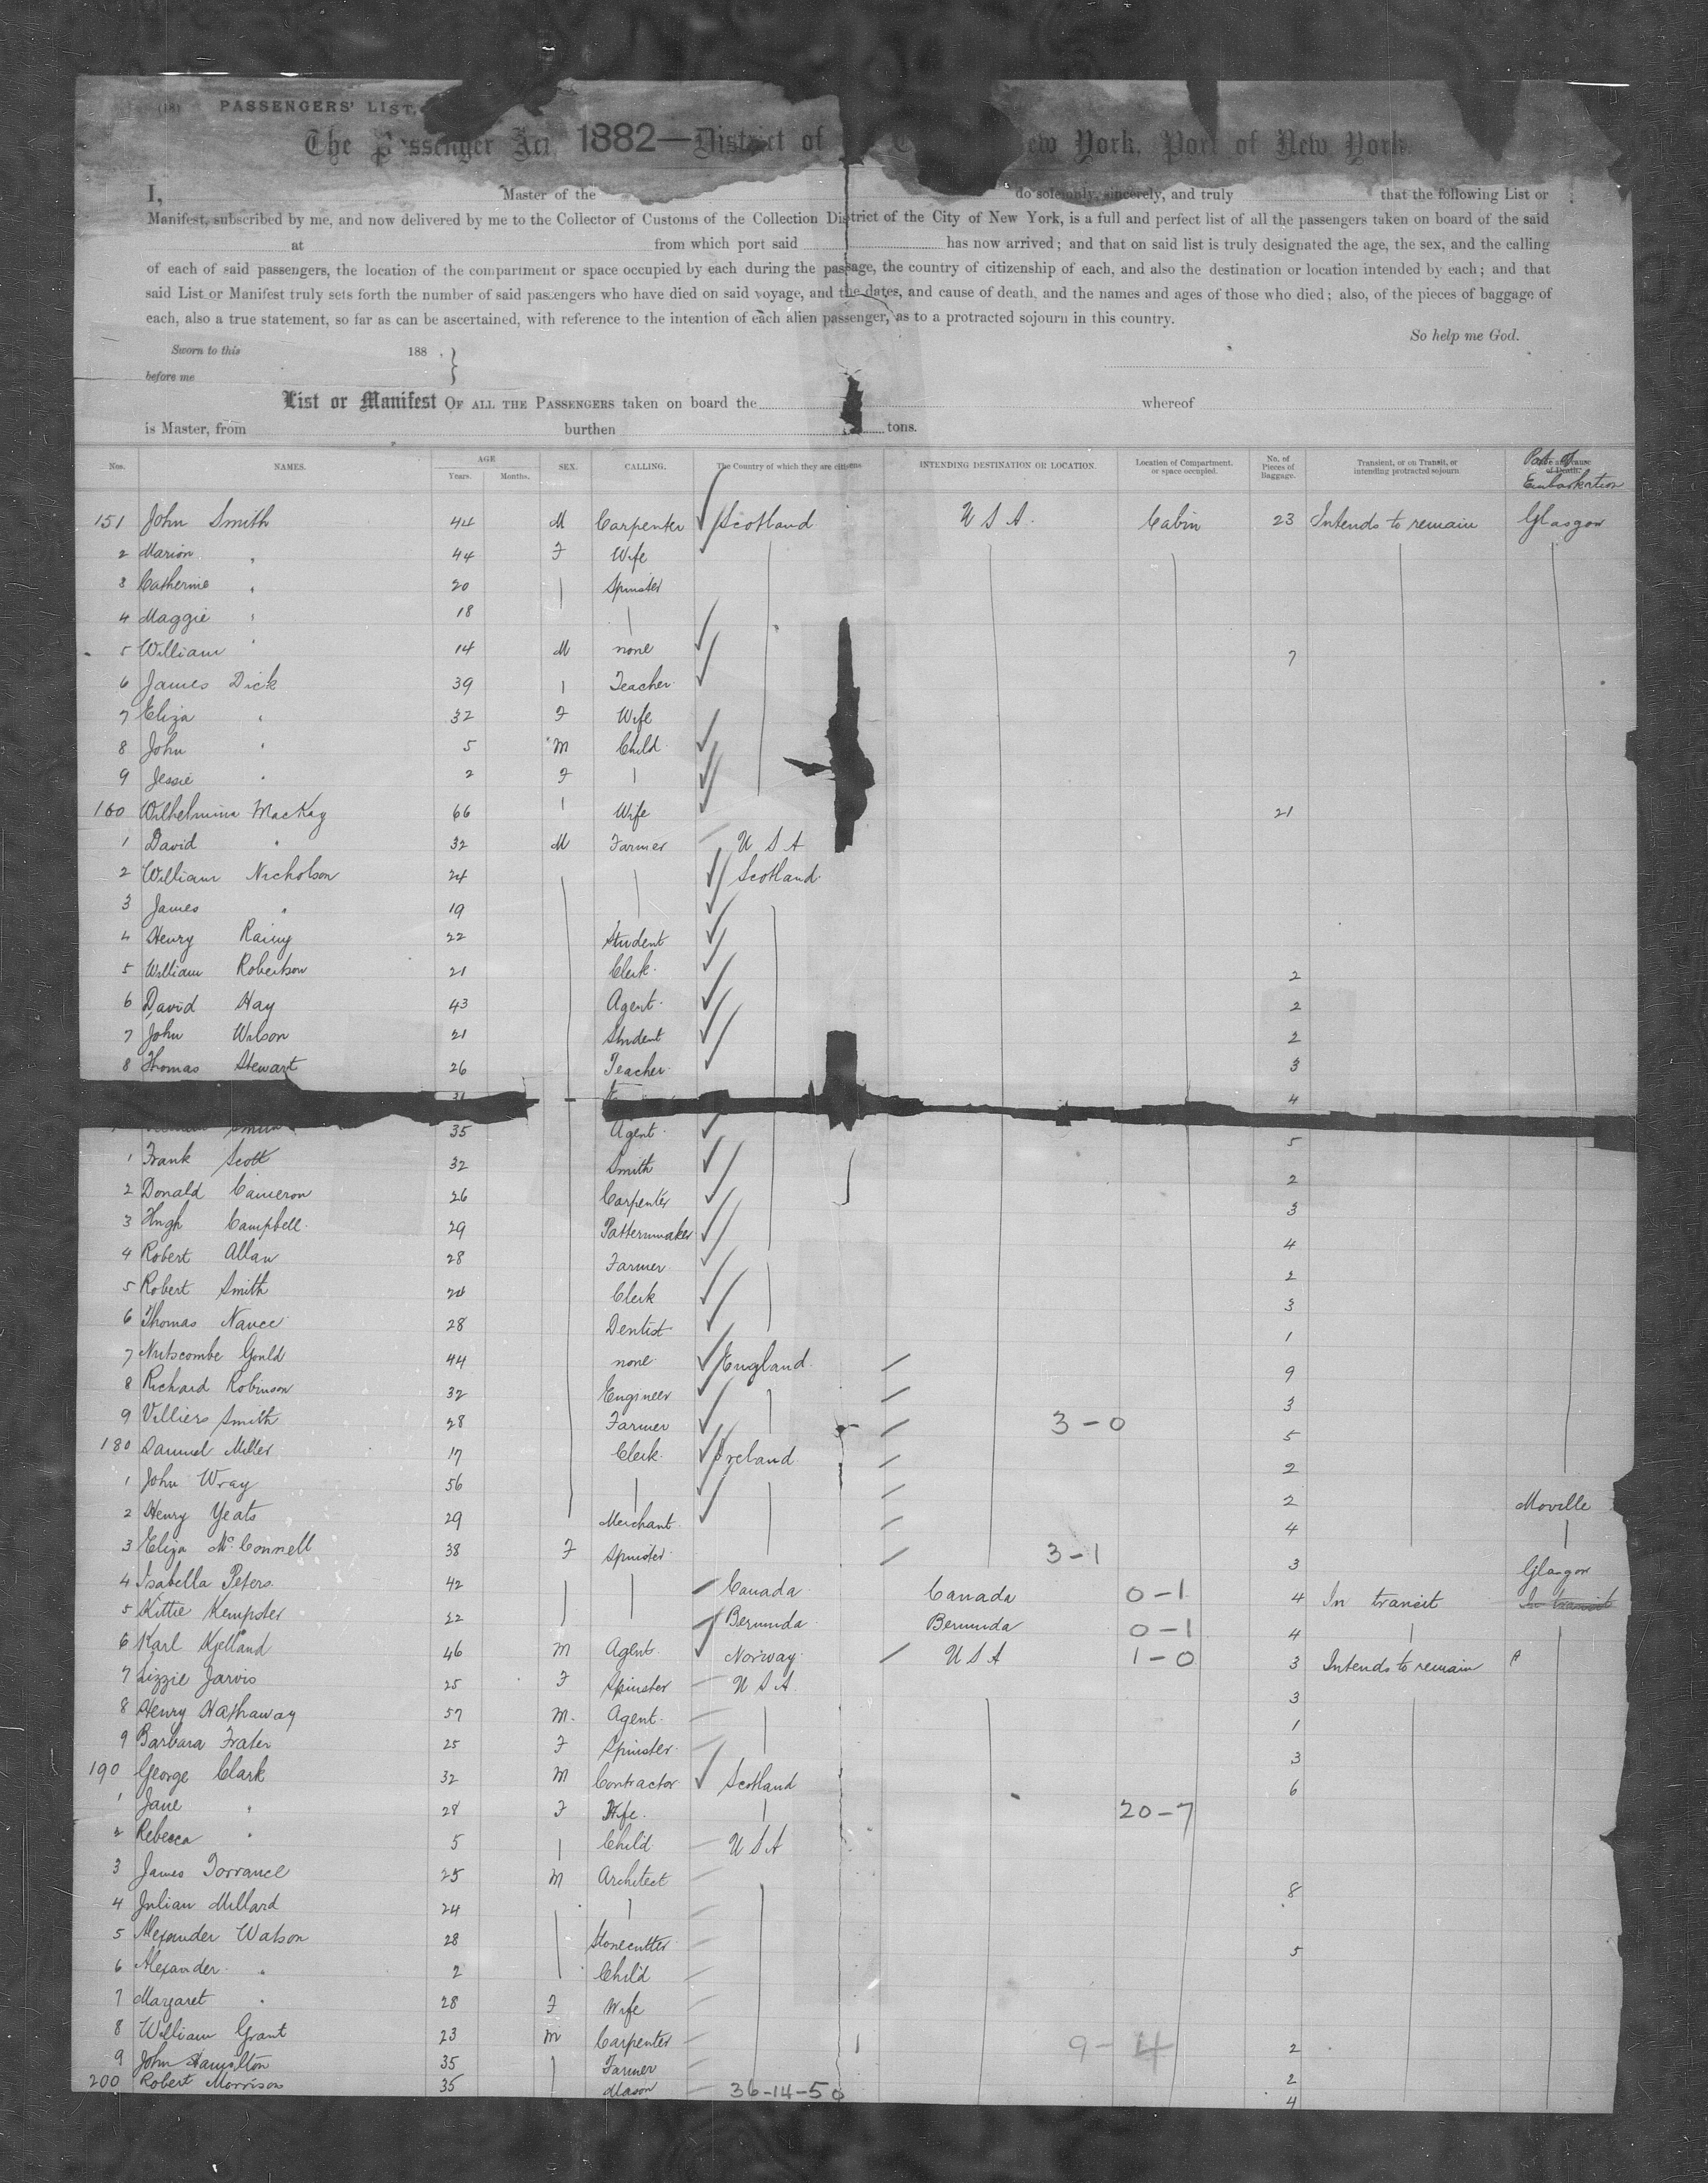 (18) PASSENGERS' LIST.
The Passenger Act 1882—District of New York. Port of New York.
I, Master of the do solemnly, sincerely, and truly that the following List or
Manifest, subscribed by me, and now delivered by me to the Collector of Customs of the Collection District of the City of New York, is a full and perfect list of all the passengers taken on board of the said
at from which port said has now arrived; and that on said list is truly designated the age, the sex, and the calling
of each of said passengers, the location of the compartment or space occupied by each during the passage, the country of citizenship of each, and also the destination or location intended by each; and that
said List or Manifest truly sets forth the number of said passengers who have died on said voyage, and the dates, and cause of death, and the names and ages of those who died; also, of the pieces of baggage of
each, also a true statement, so far as can be ascertained, with reference to the intention of each alien passenger, as to a protracted sojourn in this country.
So help me God.
Sworn to this 188 .
before me
List or Manifest OF ALL THE PASSENGERS taken on board the whereof
is Master, from burthen tons.
Nos. NAMES. AGE Years. Months. SEX. CALLING. The Country of which they are citizens INTENDING DESTINATION OR LOCATION. Location of Compartment, or space occupied. No. of Pieces of Baggage. Transient, or on Transit, or intending protracted sojourn Port of Embarkation
151 John Smith 44 M Carpenter Scotland U S A. Cabin 23 Intends to remain Glasgow
2 Marion " 44 F Wife
3 Catherine " 20 Spinster
4 Maggie " 18
5 William " 14 M none 7
6 James Dick 39 Teacher
7 Eliza " 32 F Wife
8 John " 5 M Child
9 Jessie " 2 F
160 Wilhelmina MacKay 66 Wife 21
1 David " 32 M Farmer U S A
2 William Nicholson 24 Scotland
3 James " 19
4 Henry Rainy 22 Student
5 William Robertson 21 Clerk 2
6 David Hay 43 Agent 2
7 John Wilson 21 Student 2
8 Thomas Stewart 26 Teacher 3
31 4
Smith 35 Agent 5
1 Frank Scott 32 Smith 2
2 Donald Cameron 26 Carpenter 3
3 Hugh Campbell 29 Patternmaker 4
4 Robert Allan 28 Farmer 2
5 Robert Smith 24 Clerk 3
6 Thomas Nance 28 Dentist 1
7 Nutscombe Gould 44 none England 9
8 Richard Robinson 32 Engineer 3
9 Villiers Smith 28 Farmer 3-0 5
180 Samuel Miller 17 Clerk Ireland 2
1 John Wray 56 2 Moville
2 Henry Yeats 29 Merchant 4
3 Eliza McConnell 38 F Spinster 3-1 3 Glasgow
4 Isabella Peters 42 Canada Canada 0-1 4 In transit In transit
5 Kittie Kempster 22 Bermuda Bermuda 0-1 4
6 Karl Kjelland 46 M Agent Norway U S A 1-0 3 Intends to remain
7 Lizzie Jarvis 25 F Spinster U S A 3
8 Henry Hathaway 57 M. Agent 1
9 Barbara Frater 25 F Spinster 3
190 George Clark 32 M Contractor Scotland 6
1 Jane " 28 F Wife 20-7
2 Rebecca " 5 Child U S A
3 James Torrance 25 M Architect 8
4 Julian Millard 24
5 Alexander Watson 28 Stonecutter 5
6 Alexander " 2 Child
7 Margaret " 28 F Wife
8 William Grant 23 M Carpenter 9-4 2
9 John Hamilton 35 Farmer 2
200 Robert Morrison 35 Mason 36-14-50 4